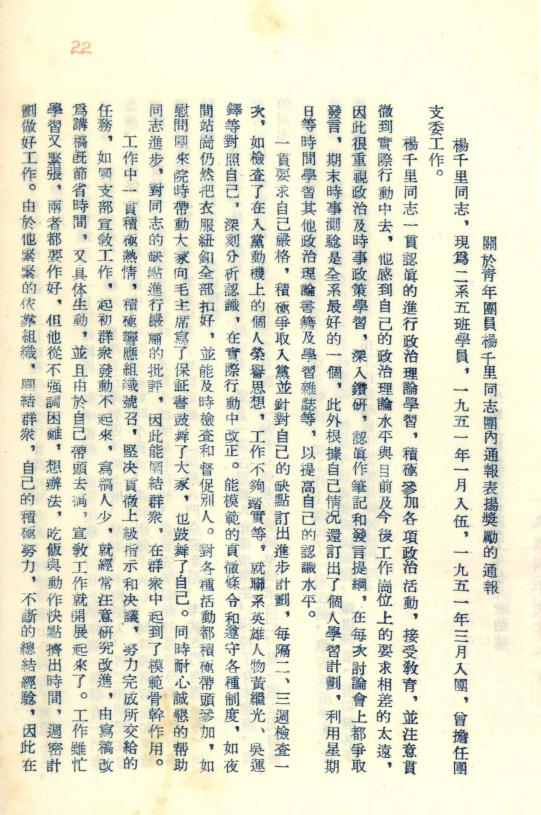 22
關於青年團員楊千里同志團內通報表揚獎勵的通報
楊千里同志，現爲二系五班學員，一九五一年一月入伍，一九五一年三月入團，曾擔任團
支委工作。
楊千里同志一貫認眞的進行政治理論學習，積極參加各項政治活動，接受敎育，並注意貫
徹到實際行動中去，他感到自己的政治理論水平與目前及今後工作崗位上的要求相差的太遠，
因此很重視政治及時事政策學習，深入鑽硏，認眞作筆記和發言提綱，在每次討論會上都爭取
發言，期末時事測驗是全系最好的一個，此外根據自己情況還訂出了個人學習計劃，利用星期
日等時間學習其他政治理論書籍及學習雜誌等，以提高自己的認識水平。
一貫要求自己嚴格，積極爭取入黨並針對自己的缺點訂出進步計劃，每隔二、三週檢查一
次，如檢查了在入黨動機上的個人榮譽思想，工作不夠踏實等，就聯系英雄人物黃繼光、吳運
鐸等對照自己，深刻分析認識，在實際行動中改正。能模範的貫徹條令和遵守各種制度，如夜
間站崗仍然把衣服紐釦全部扣好，並能及時檢查和督促別人。對各種活動都積極帶頭參加，如
慰問團來院時帶動大家向毛主席寫了保証書鼓舞了大家，也鼓舞了自己。同時耐心誠懇的帮助
同志進步，對同志的缺點進行嚴肅的批評，因此能團結群衆，在群衆中起到了模範骨幹作用。
工作中一貫積極熱情，積極響應組織號召，堅決貫徹上級指示和決議，努力完成所交給的
任務，如團支部宣敎工作，起初群衆發動不起來，寫稿人少，就經常注意硏究改進，由寫稿改
爲講稿旣節省時間，又具体生動，並且由於自己帶頭去搞，宣敎工作就開展起來了。工作雖忙
學習又緊張，兩者都要作好，但他從不强調困難，想辦法，吃飯與動作快點擠出時間，週密計
劃做好工作。由於他緊緊的依靠組織，團結群衆，自己的積極努力，不斷的總結經驗，因此在